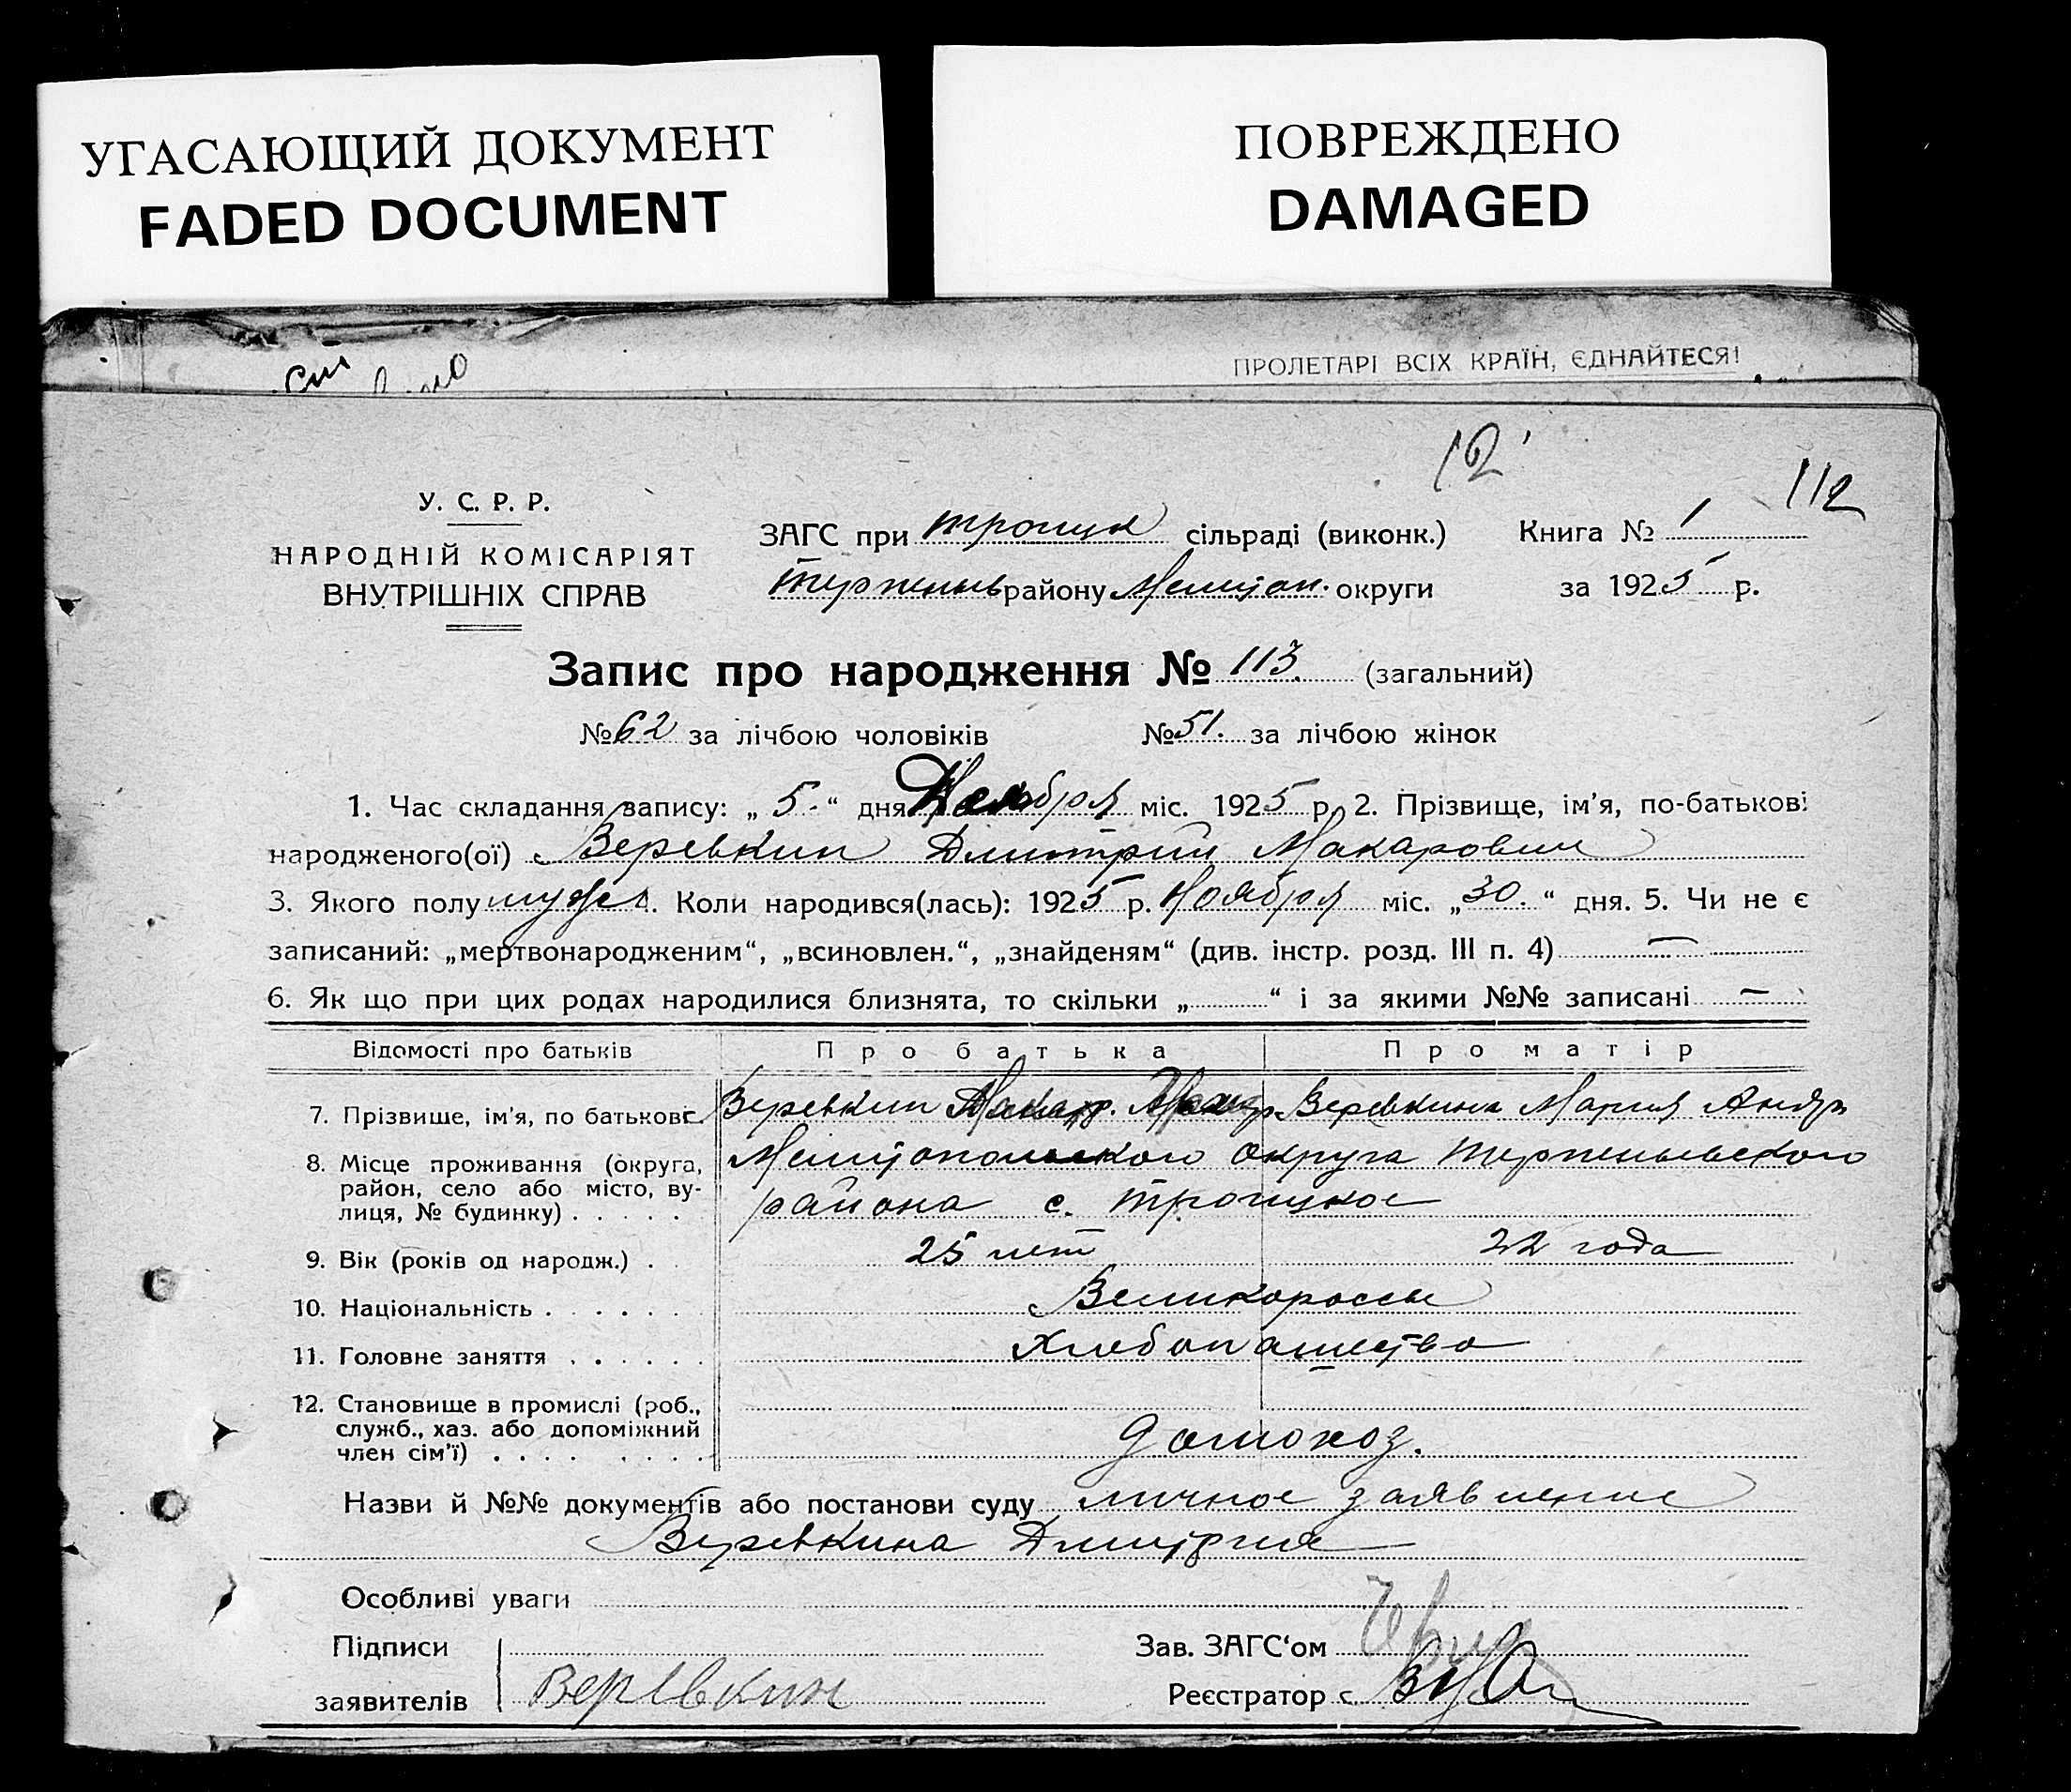 УГАСАЮЩИЙ ДОКУМЕНТ
FADED DOCUMENT
ПОВРЕЖДЕНО
DAMAGED
ПРОЛЕТАРІ ВСІХ КРАЇН, ЄДНАЙТЕСЯ!
12
112
У. С. Р. Р.
НАРОДНІЙ КОМІСАРІЯТ
ВНУТРІШНІХ СПРАВ
ЗАГС при Троицк сільраді (виконк.) Книга № 1
району Мелитоп. округи за 1925 р.
Запис про народження № 113. (загальний)
№ 62 за лічбою чоловіків № 51. за лічбою жінок
1. Час складання запису: „ 5. “ дня міс. 1925 р. 2. Прізвище, ім'я, по-батькові
народженого(ої) Веревкин Дмитрий Макарович
3. Якого полу муж. 4. Коли народився(лась): 1925 р. Ноября міс. „30.“ дня. 5. Чи не є
записаний: „мертвонародженим“, „всиновлен.“, „знайденям“ (див. інстр. розд. III п. 4) —
6. Як що при цих родах народилися близнята, то скільки „ “ і за якими №№ записані —
Відомості про батьків Про батька Про матір
7. Прізвище, ім'я, по батькові. Веревкин Макар. Веревкина Мария Андр
8. Місце проживання (округа, район, село або місто, вулиця, № будинку) . . . . . Мелитопольского округа
района с. Троицкое
9. Вік (років од народж.) . 25 лет 22 года
10. Національність . . . . . . Великороссы
11. Головне заняття . . . . . . Хлебопашество
12. Становище в промислі (роб.,
служб., хаз. або допоміжний
член сім'ї) . . . . . . . . домохоз.
Назви й №№ документів або постанови суду личное заявление
Веревкина Дмитрия
Особливі уваги
Підписи Зав. ЗАГС‘ом
заявителів Веревкин Реєстратор